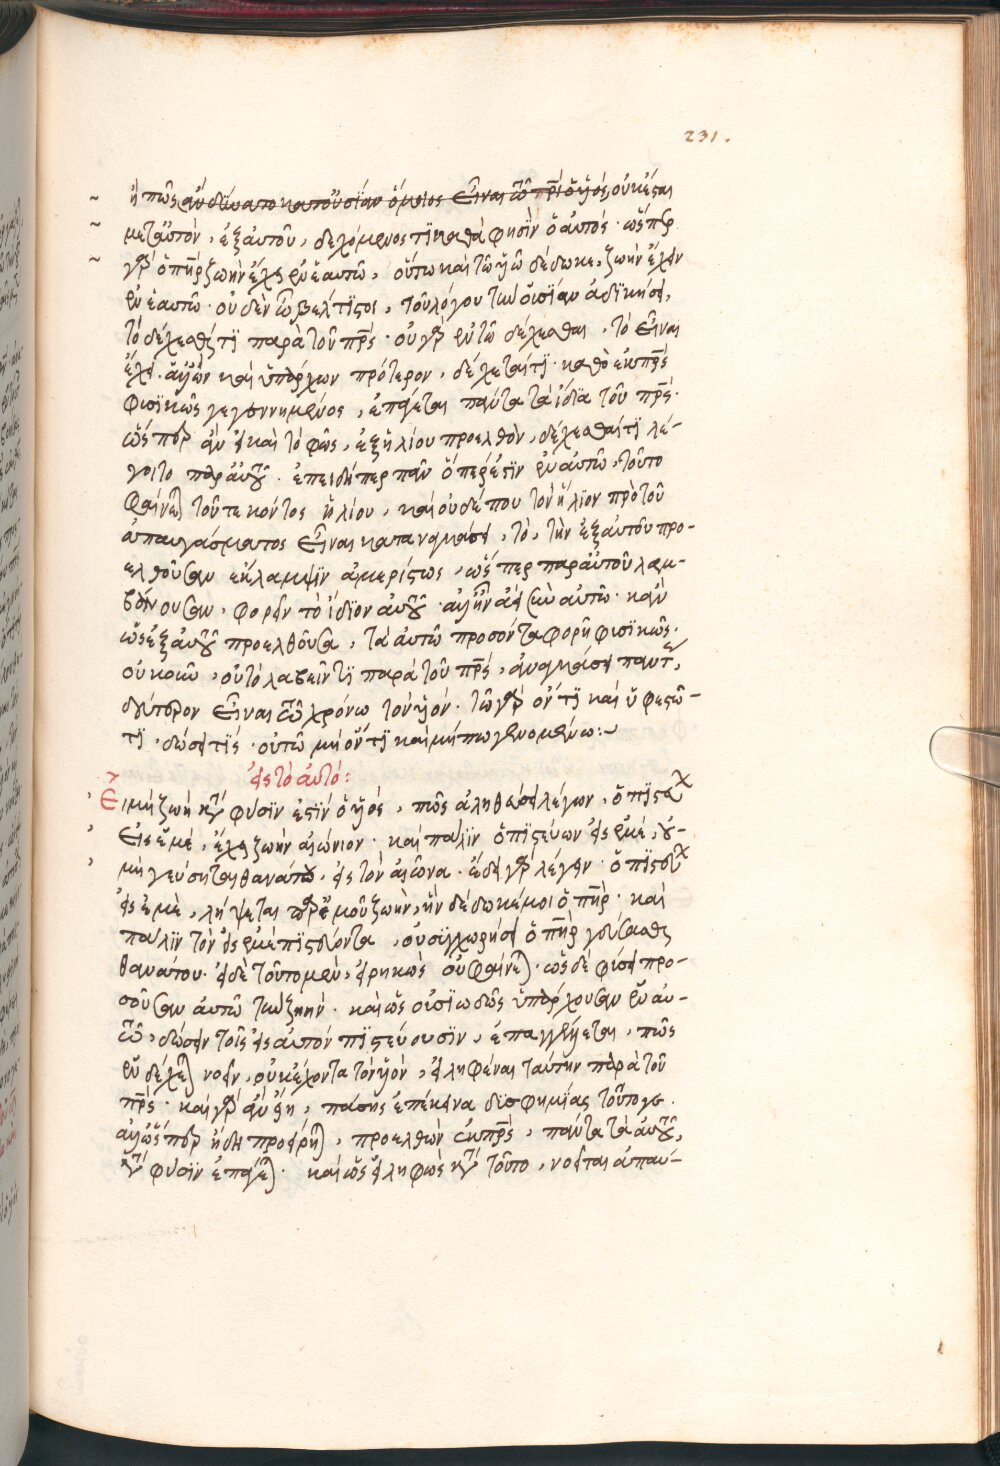 231.
ἢ πῶς ἂν δύναιτο κατ' οὐσίαν ὅμοιος εἶναι τῶ πρὶ ὁ ὑὸς, οὐκ ἔσται
μετ' αὐτὸν, ἐξ αὐτοῦ, δεχόμενος τὶ καθά φησὶν ὁ αὐτός· ὥσπερ
γὰρ ὁ πὴρ ζωὴν ἔχει ἐν ἑαυτῶ, οὕτω καὶ τῶ ὑῶ δέδωκε, ζωὴν ἔχειν
ἐν ἑαυτῶ· οὐδὲν ὦ βέλτιστοι, τοῦ λόγου τὴν οὐσίαν ἀδικήσει,
τὸ δέχεσθαι τι παρὰ τοῦ πρς· οὐ γὰρ ἐν τῶ δέχεσθαι, τὸ εἶναι
ἔχει. ἀλλ' ὢν καὶ ὑπάρχων πρότερον, δέχεταί τι· καθὸ ἐκ πρς
φυσικῶς γεγεννημένος, ἐπάγεται πάντα τὰ ἴδια τοῦ πρς·
ὥσπερ ἂν εἰ καὶ τὸ φῶς, ἐξ ἡλίου προελθὸν, δέχεσθαί τι λέ-
γοιτο παρ' αὐτοῦ· ἐπειδήπερ πᾶν ὅπερ ἐστὶν ἐν αὐτῶ, τοῦτο
φαίνεται τοῦ τεκόντος ἡλίου, καὶ οὐδέπου τὸν ἥλιον πρὸ τοῦ
ἀπαυγάσματος εἶναι καταναγκάσει, τὸ, τὴν ἐξ αὐτοῦ προ-
ελθοῦσαν ἔκλαμψιν ἀμερίστως, ὥσπερ παρ' αὐτοῦ λαμ-
βάνουσαν, φορεῖν τὸ ἴδιον αὐτοῦ· ἀλλ' ἦν ἀεὶ σὺν αὐτῶ· κἂν
ὡς ἐξ αὐτοῦ προελθοῦσα, τὰ αὐτῶ προσόντα φορῆ φυσικῶς·
οὐκοῦν, οὐ τὸ λαβεῖν τι παρὰ τοῦ πρς, ἀναγκάσει πάντως,
δεύτερον εἶναι τῶ χρόνω τὸν ὑόν· τῶ γὰρ ὄντι καὶ ὑφεστῶ-
τι, δώσει τίς· οὐ τῶ μὴ ὄντι καὶ μήπω γενομένω:
εἰς τὸ αὐτό:
Εἰ μὴ ζωὴ κατὰ φύσιν ἐστὶν ὁ ὑὸς, πῶς ἀληθεύσει λέγων, ὁ πιστεύων
εἰς ἐμὲ, ἔχει ζωὴν αἰώνιον· καὶ πάλιν ὁ πιστεύων εἰς ἐμὲ, οὐ
μὴ γεύσηται θανάτου, εἰς τὸν αἰῶνα· ἔδει γὰρ λέγειν· ὁ πιστεύων
εἰς ἐμὲ, λήψεται παρ' ἐμοῦ ζωὴν, ἣν δέδωκέ μοι ὁ πὴρ· καὶ
πάλιν τὸν εἰς ἐμὲ πιστεύοντα, οὐ συγχωρήσει ὁ πὴρ γεύσασθαι
θανάτου· εἰ δὲ τοῦτο μὲν, εἰρηκὼς οὐ φαίνεται· ὡς δὲ φύσει προ-
σοῦσαν αὐτῶ τὴν ζωὴν· καὶ ὡς οὐσιωδῶς ὑπάρχουσαν ἐν αὐ-
τῶ, δώσειν τοῖς εἰς αὐτὸν πιστεύουσιν, ἐπαγγέλλεται, πῶς
ἐνδέχεται νοεῖν, οὐκ ἔχοντα τὸν ὑὸν, εἰληφέναι ταύτην παρὰ τοῦ
πρς· καὶ γὰρ ἂν εἴη, πάσης ἐπέκεινα δυσφημίας τοῦτό γε.
ἀλλ' ὥσπερ ἤδη προείρηται, προελθὼν ἐκ πρς, πάντα τὰ αὐτοῦ,
κατὰ φύσιν ἐπάγεται· καὶ ὡς εἰληφὼς κατὰ τοῦτο, νοεῖται ἀπαύ-